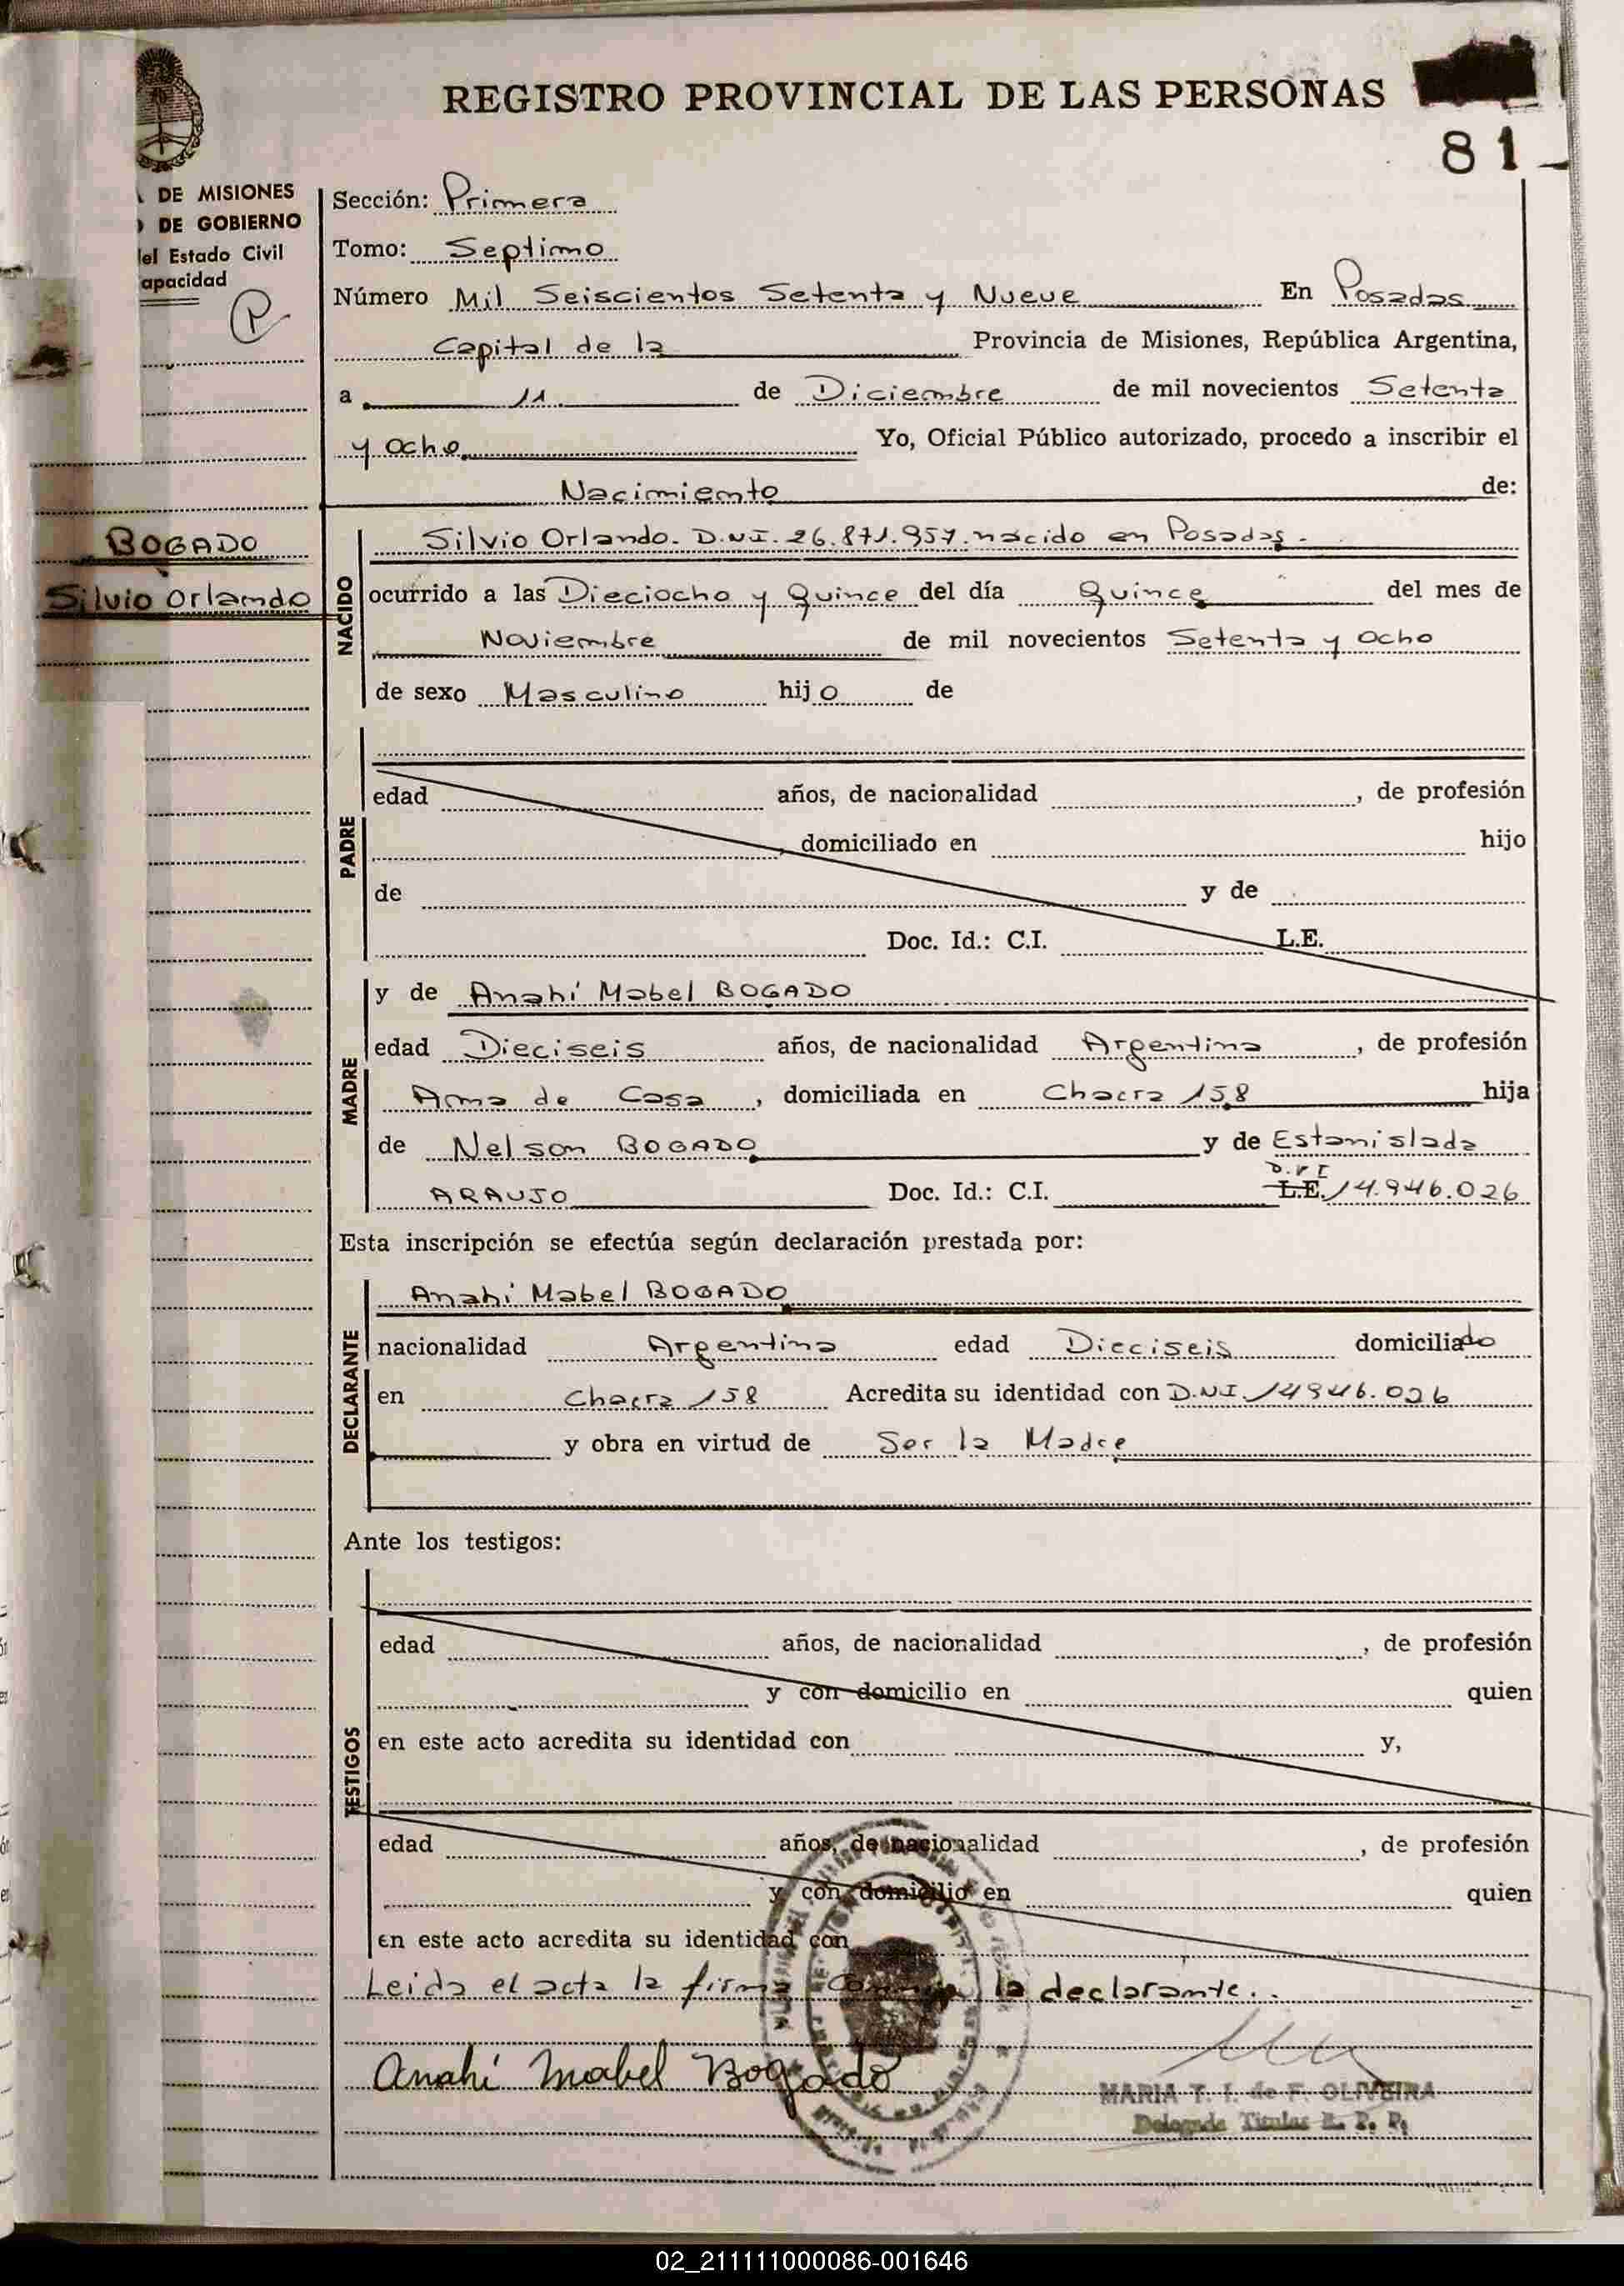 REGISTRO PROVINCIAL DE LAS PERSONAS
81
DE MISIONES
DE GOBIERNO
el Estado Civil
apacidad
P
Sección: Primera
Tomo: Septimo
Número Mil Seiscientos Setenta y Nueve En Posadas
Capital de la Provincia de Misiones, República Argentina,
a 11 de Diciembre de mil novecientos Setenta
y ocho Yo, Oficial Público autorizado, procedo a inscribir el
Nacimiento de:
BOGADO
Silvio Orlando
NACIDO
Silvio Orlando. D.N.I. 26.871.957. nacido en Posadas.
ocurrido a las Dieciocho y Quince del día Quince del mes de
Noviembre de mil novecientos Setenta y Ocho
de sexo Masculino hijo de
PADRE
edad años, de nacionalidad , de profesión
, domiciliado en hijo
de y de
Doc. Id.: C.I. L.E.
MADRE
y de Anahí Mabel BOGADO
edad Dieciseis años, de nacionalidad Argentina, de profesión
Ama de Casa, domiciliada en Chacra 158 hija
de Nelson BOGADO y de Estanislada
ARAUJO Doc. Id.: C.I. L.E. 14.946.026
Esta inscripción se efectúa según declaración prestada por:
DECLARANTE
Anahí Mabel BOGADO
nacionalidad Argentina edad Dieciseis domiciliado
en Chacra 158 Acredita su identidad con D.N.I. 14946.026
y obra en virtud de Ser la Madre
Ante los testigos:
TESTIGOS
edad años, de nacionalidad , de profesión
y con domicilio en quien
en este acto acredita su identidad con y,
edad años, de nacionalidad , de profesión
y con domicilio en quien
en este acto acredita su identidad con
Leida el acta la firma la declarante.
Anahí Mabel Bogado
MARIA T. I. de F. OLIVEIRA
Delegada Titular R. P. P.
02_211111000086-001646